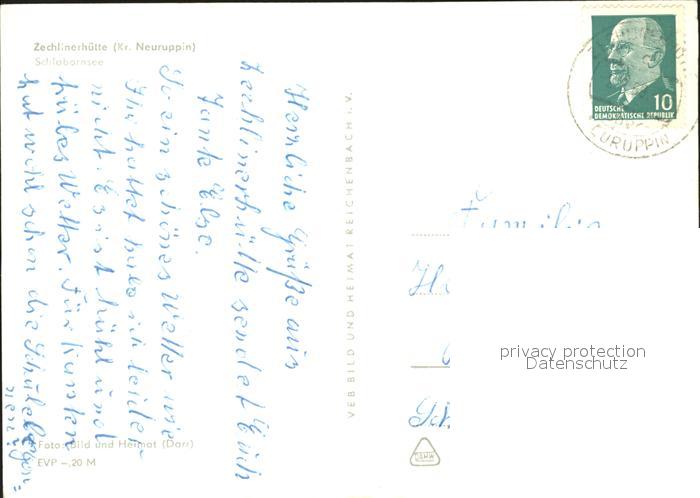 Zechlinerhütte (Kr. Neuruppin)
Schlabornsee
Herrliche Grüße aus
Zechlinerhütte sendet Euch
Tante Else.
So ein schönes Wetter wie
Ihr hattet habe ich leider
nicht. Es ist kühl und
trübes Wetter. Für Karsten
hat wohl schon die Schule begon=
nen?
Foto: Bild und Heimat (Darr)
EVP –,20 M
VEB BILD UND HEIMAT REICHENBACH i. V.
10
DEUTSCHE
DEMOKRATISCHE REPUBLIK
EURUPPIN
Familie
privacy protection
Datenschutz